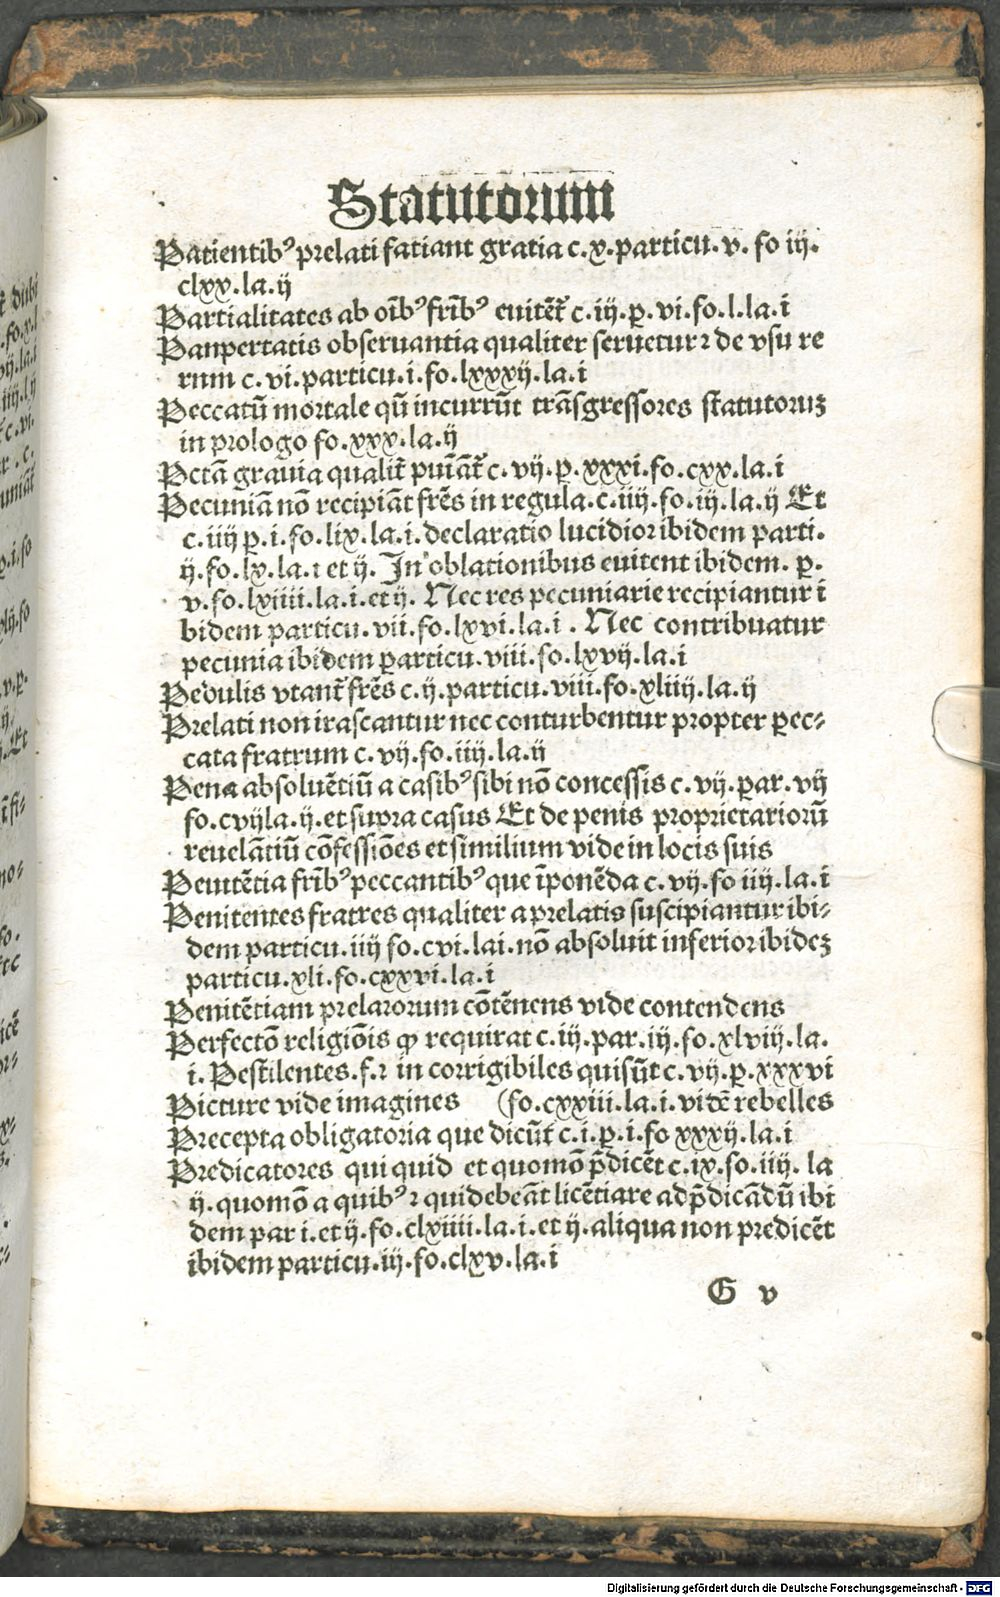 Statutorum
Patientibꝰ prelati fatiant gratia c.x.particu.v. fo iij.
clxx.la.ij
Partialitates ab oībꝰ frībꝰ euitēt᷑ c.iij.ꝑ.vi.fo.l.la.i
Panpertatis obseruantia qualiter seruetur ⁊ de vsu re
rum c.vi.particu.i.fo.lxxxij.la.i
Peccatū mortale qū incurrūt trāsgressores statutoruꝫ
in prologo fo.xxx.la.ij
Pctā grauia qualit᷑ puīāt᷑ c.vij.ꝑ.xxxi.fo.cxx.la.i
Pecuniā nō recipiāt frēs in regula.c.iiij.fo.iij.la.ij Et
c.iiij ꝑ.i.fo.lix.la.i.declaratio lucidior ibidem parti.
ij.fo.lx.la.⁊ et ij. In oblationibus euitent ibidem. ꝑ.
v.fo.lxiiii.la.i.et ij. Nec res pecuniarie recipiantur i
bidem particu.vii.fo.lxvi.la.i . Nec contribuatur
pecunia ibidem ꝑarticu.viii.fo.lxvij.la.i
Pedulis vtant᷑ frēs c.ij.particu.viii.fo.xliiij.la.ij
Prelati non irascantur nec conturbentur propter ꝑec⸗
cata fratrum c.vij.fo.iiij.la.ij
Pena absoluētiū a casibꝰ sibi nō concessis c.vij.ꝑar.vij
fo.cvijla.ij.et supra casus Et de penis proprietariorū
reuelātiū cōfessiōes et similium vide in locis suis
Peuitētia frībꝰ peccantibꝰ que īponēda c.vij.fo iiij.la.i
Penitentes fratres qualiter a prelatis suscipiantur ibi⸗
dem particu.iiij fo.cvi.lai.nō absoluit inferior ibideꝫ
particu.xli.fo.cxxvi.la.i
Penitētiam prelarorum cōtēnens vide contendens
Perfectō religiōis ꝙ requirat c.iij.par.iij.fo.xlviij.la.
i. Pestilentes.f.⁊ in corrigibiles qui sūt c.vij.ꝑ.xxxvi
Picture vide imagines (fo.cxxiii.la.i.vitē rebelles
Precepta obligatoria que dicūt c.i.ꝑ.i.fo xxxij.la.i
Predicatores qui quid et quomō p̄dicēt c.ix.fo.iiij. la
ij.quomō a quibꝰ ⁊ qui debeāt licētiare ad p̄dicādū ibi
dem par i.et ij.fo.clxiiii.la.i.et ij.aliqua non predicēt
ibidem particu.iij.fo.clxv.la.i
G v
Digitalisierung gefördert durch die Deutsche Forschungsgemeinschaft - DFG